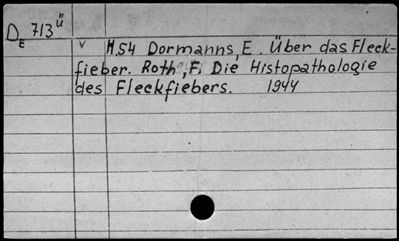 DE 713 ü
v H54 Dormanns, E. Über das Fleck-
fieber. Roth, F. Die Histopathologie
des Fleckfiebers. 1944